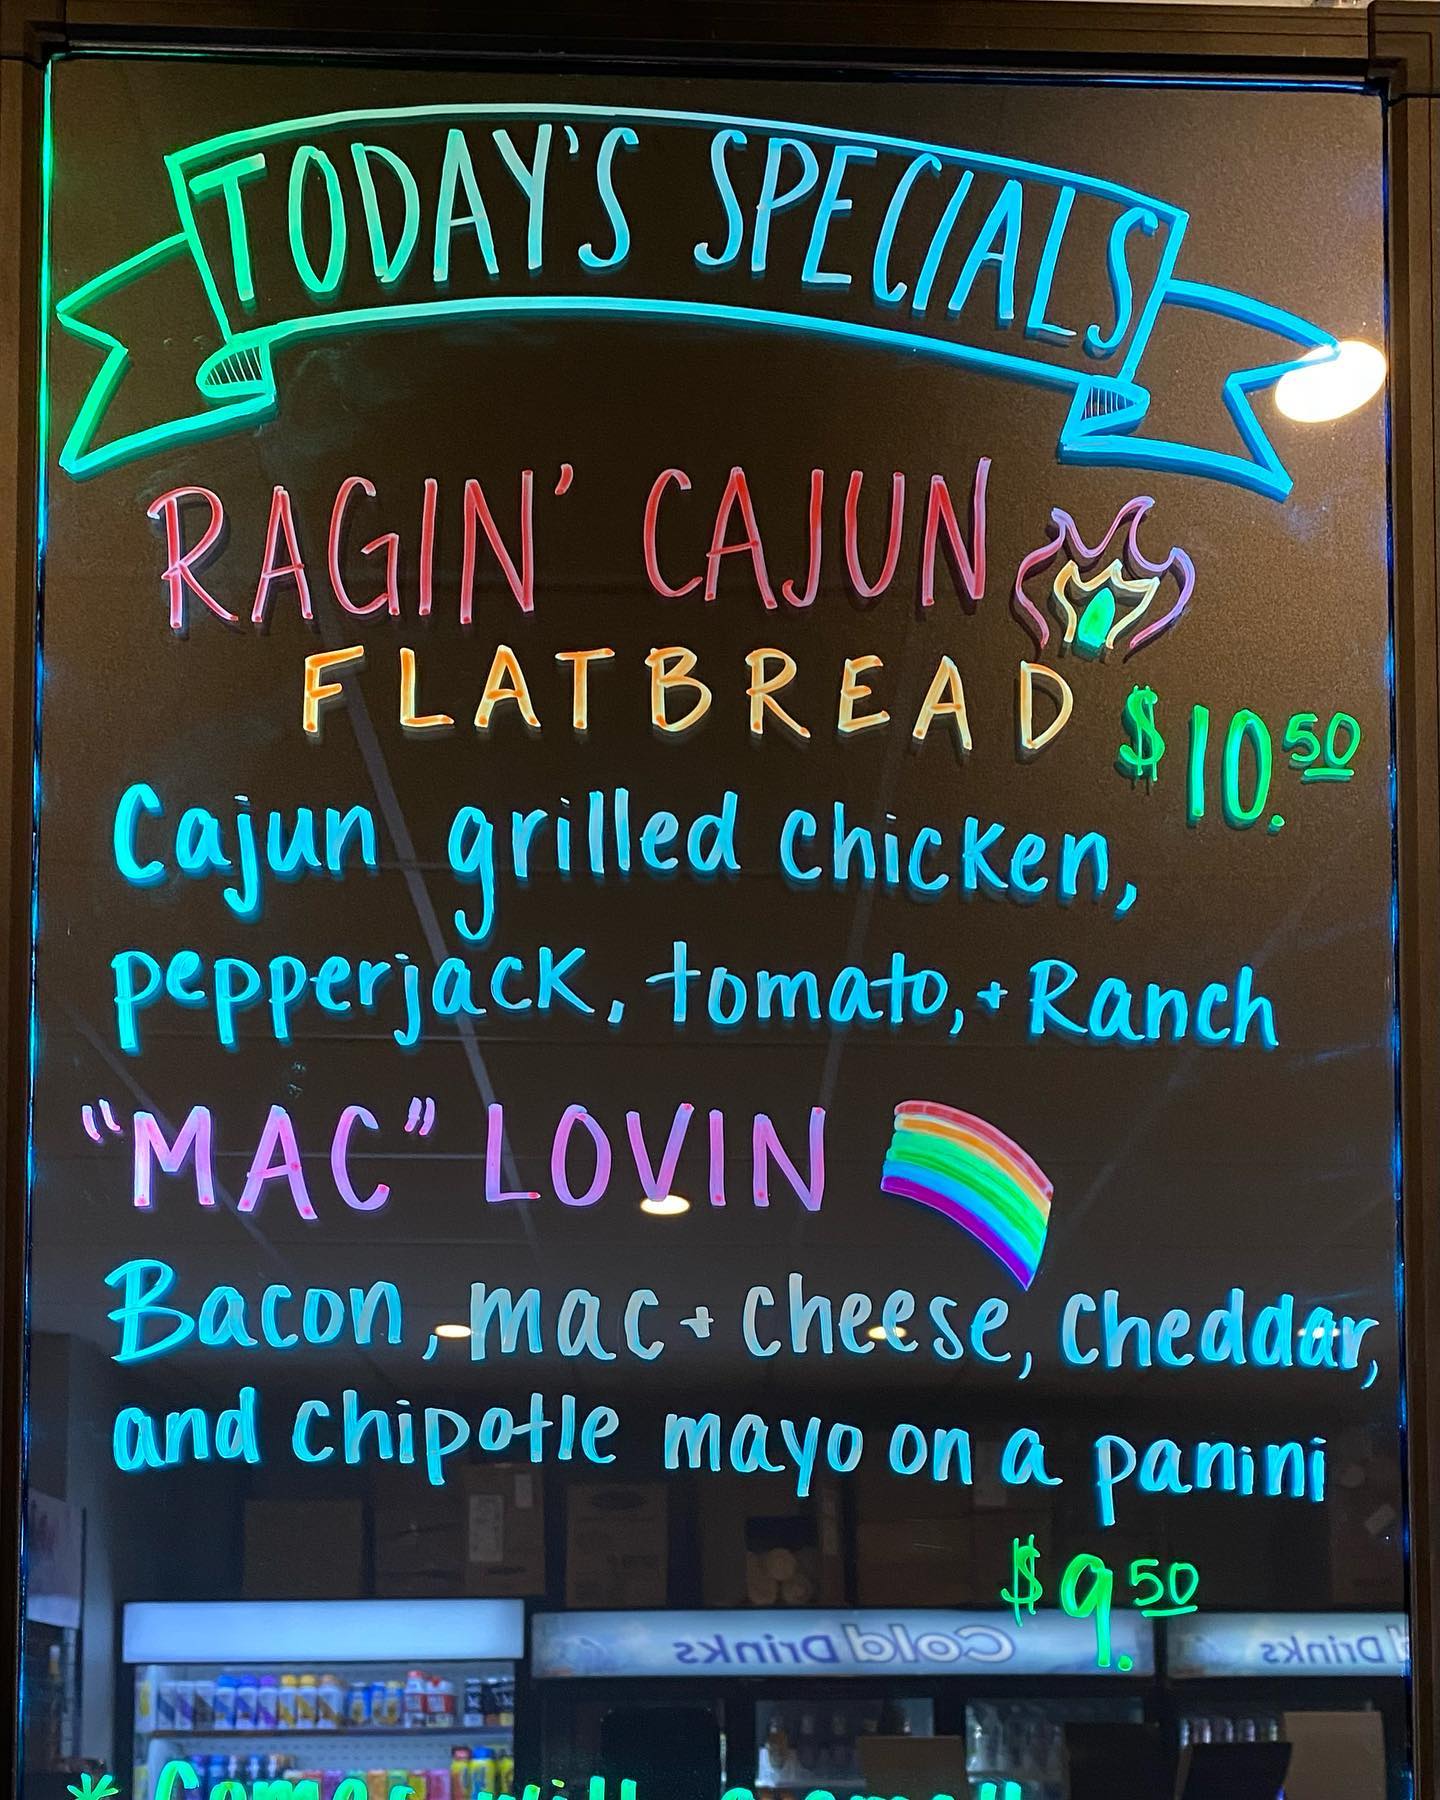 TODAY'S SPECIALS
RAGIN' CAJUN
FLATBREAD $10.50
Cajun grilled chicken,
pepperjack, tomato, + Ranch
"MAC" LOVIN
Bacon, mac + cheese, Cheddar,
and chipotle mayo on a panini
$9.50
Cold Drinks
Drinks
* Comes with a small